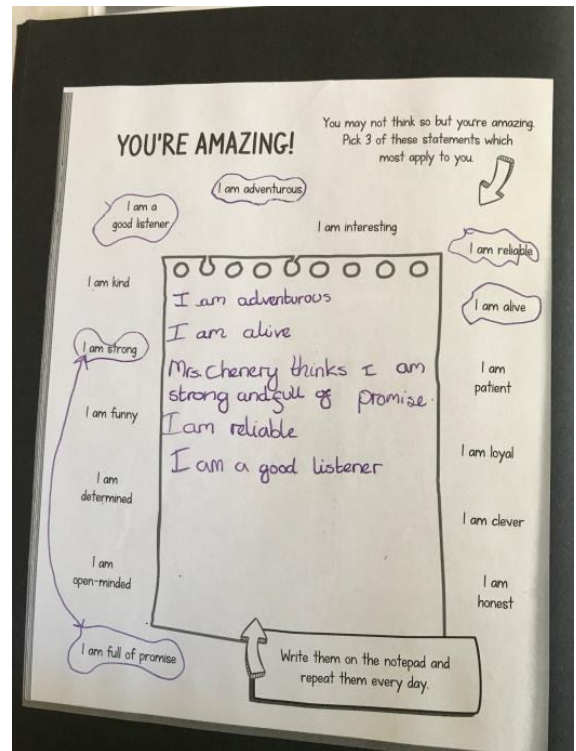 YOU'RE AMAZING!
You may not think so but you're amazing.
Pick 3 of these statements which
most apply to you.
I am adventurous
I am a
good listener
I am interesting
I am reliable
I am kind
I am alive
I am strong
I am
patient
I am funny
I am loyal
I am
determined
I am clever
I am
open-minded
I am
honest
I am full of promise
I am adventurous
I am alive
Mrs. Chenery thinks I am
strong and full of promise.
I am reliable
I am a good listener
Write them on the notepad and
repeat them every day.